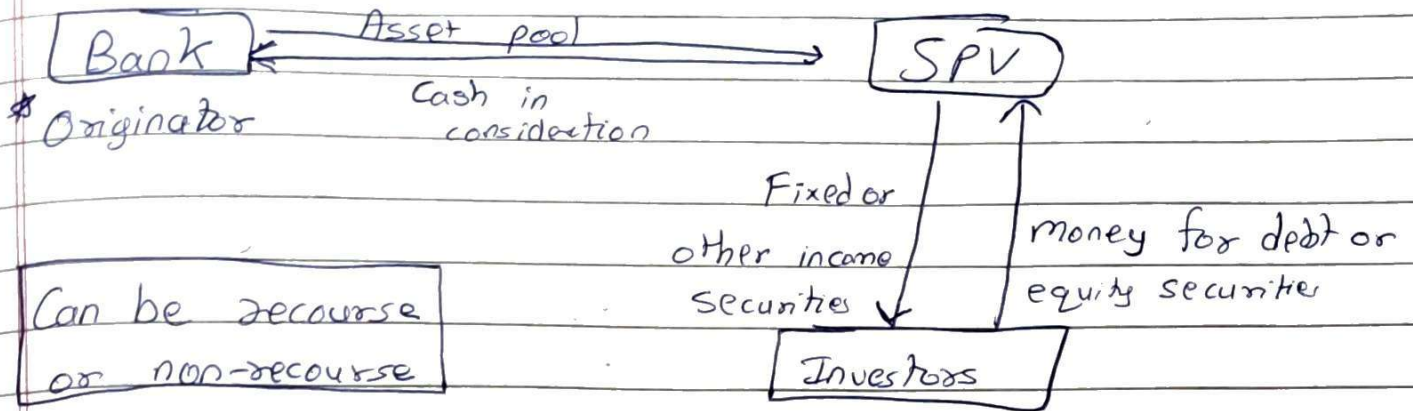 Asset pool
Bank
SPV
Cash in
consideration
* Originator
Fixed or
other income
securities
money for debt or
equity securities
Can be recourse
or non-recourse
Investors